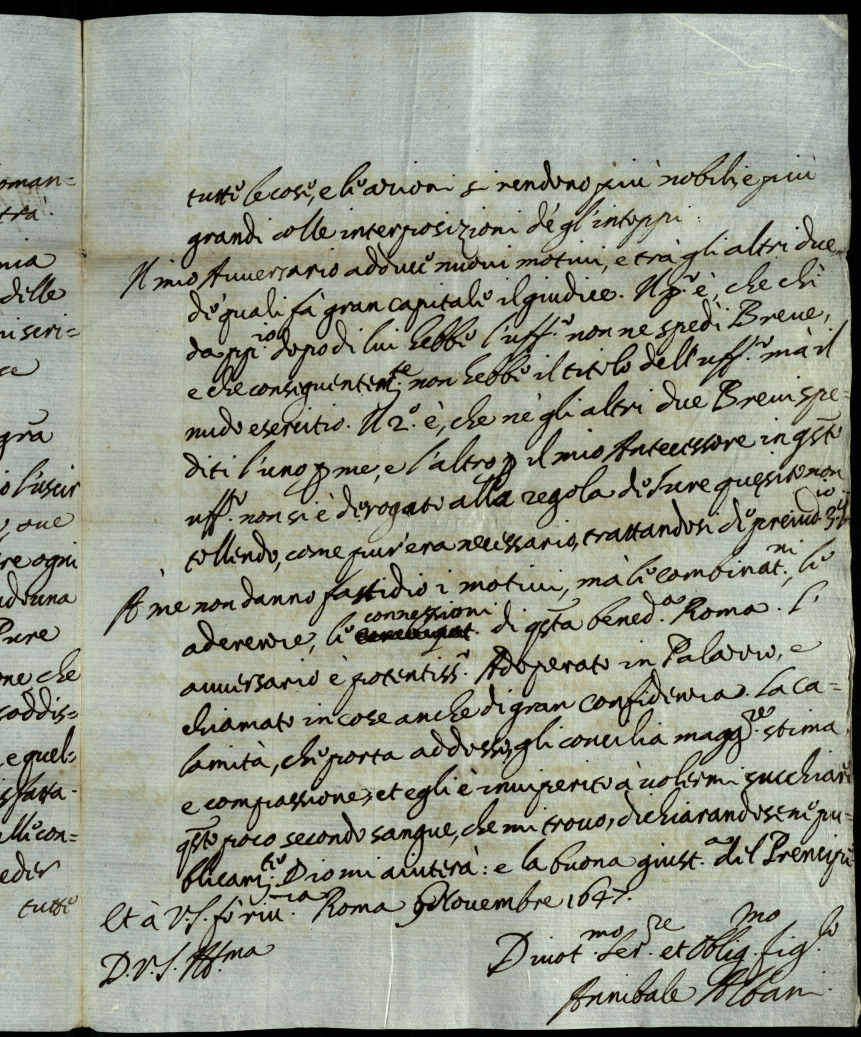 oman=
tra'
nia
dille
niseri=
se
gra
o l'uscir
, oue
re ogni
ad una
Pure
one che
soddis=
e quel=
isfatta-
alli con=
eder
tutte
tutte le cose, e le azioni si rendono più nobili, e più
grandi colle interposizioni dè gl'intoppi.
Il mio Auuersario adduce nuoui motiui, e trà gli altri due,
de' quali fà gran capitale il giudice. Il p.º è, che chi
da ppio. dopo di lui hebbe l'uff.º non ne spedì Breue,
e che conseguentemte. non hebbe il titolo dell'uff.º mà il
nudo esercitio. Il 2.º è, che nè gli altri due Breui spe=
diti l'uno p me, e l'altro p il mio Antecessore in qsto
uff.º non si è derogato alla regola de Iure quesito non
tollendo, come pur'era necessario, trattandosi di preiudio.
A' me non danno fastidio i motiui, mà le combinatni., le
aderenze, le connessioni di qsta bened.a Roma. L'
auuersario è potentiss.º Adoperato in Palazzo, e
chiamato in cose anche di gran confidenza. La ca=
lamità, che porta addosso, gli concilia maggre. stima,
e compassione, et egli è inuiperito à uolermi succhiare
qsto poco secondo sangue, che mi trouo, dichiarandosene pu=
blicamte. Dio mi aiuterà: e la buona giust.a del Prencipe
Et à V.S. fò riuia. Roma 9 Nouembre 1647.
D.V.S. Illma
Diuotmo. Serre. et Obligmo figlo.
Annibale Albani.